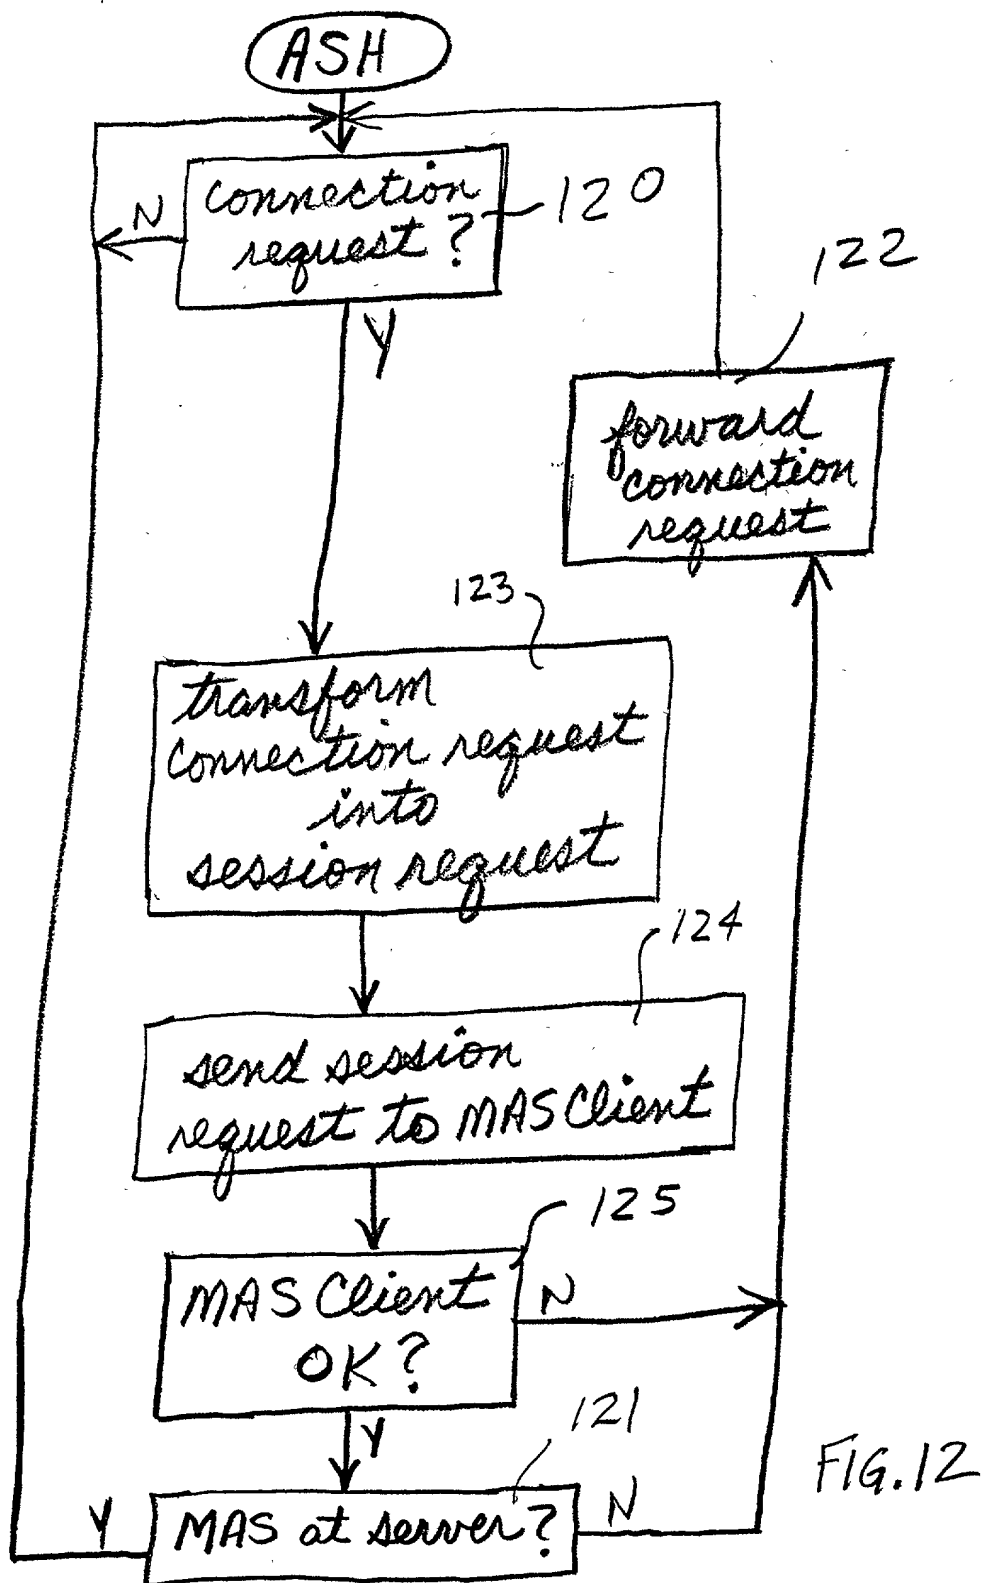 ASH
connection
request?
120
N
Y
122
forward
connection
request
123
transform
connection request
into
session request
124
send session
request to MAS Client
125
MAS Client
OK?
N
Y
121
MAS at server?
Y
N
FIG. 12